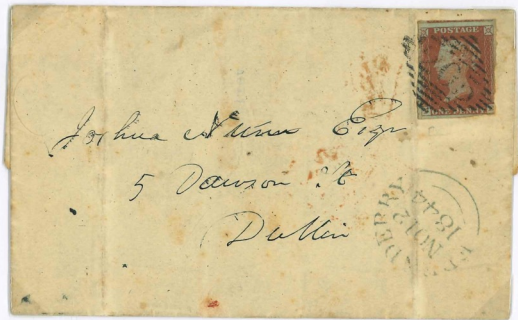 POSTAGE
Joshua Nunn Esqr
5 Dawson St
Dublin
DERRY
NO 12
1844